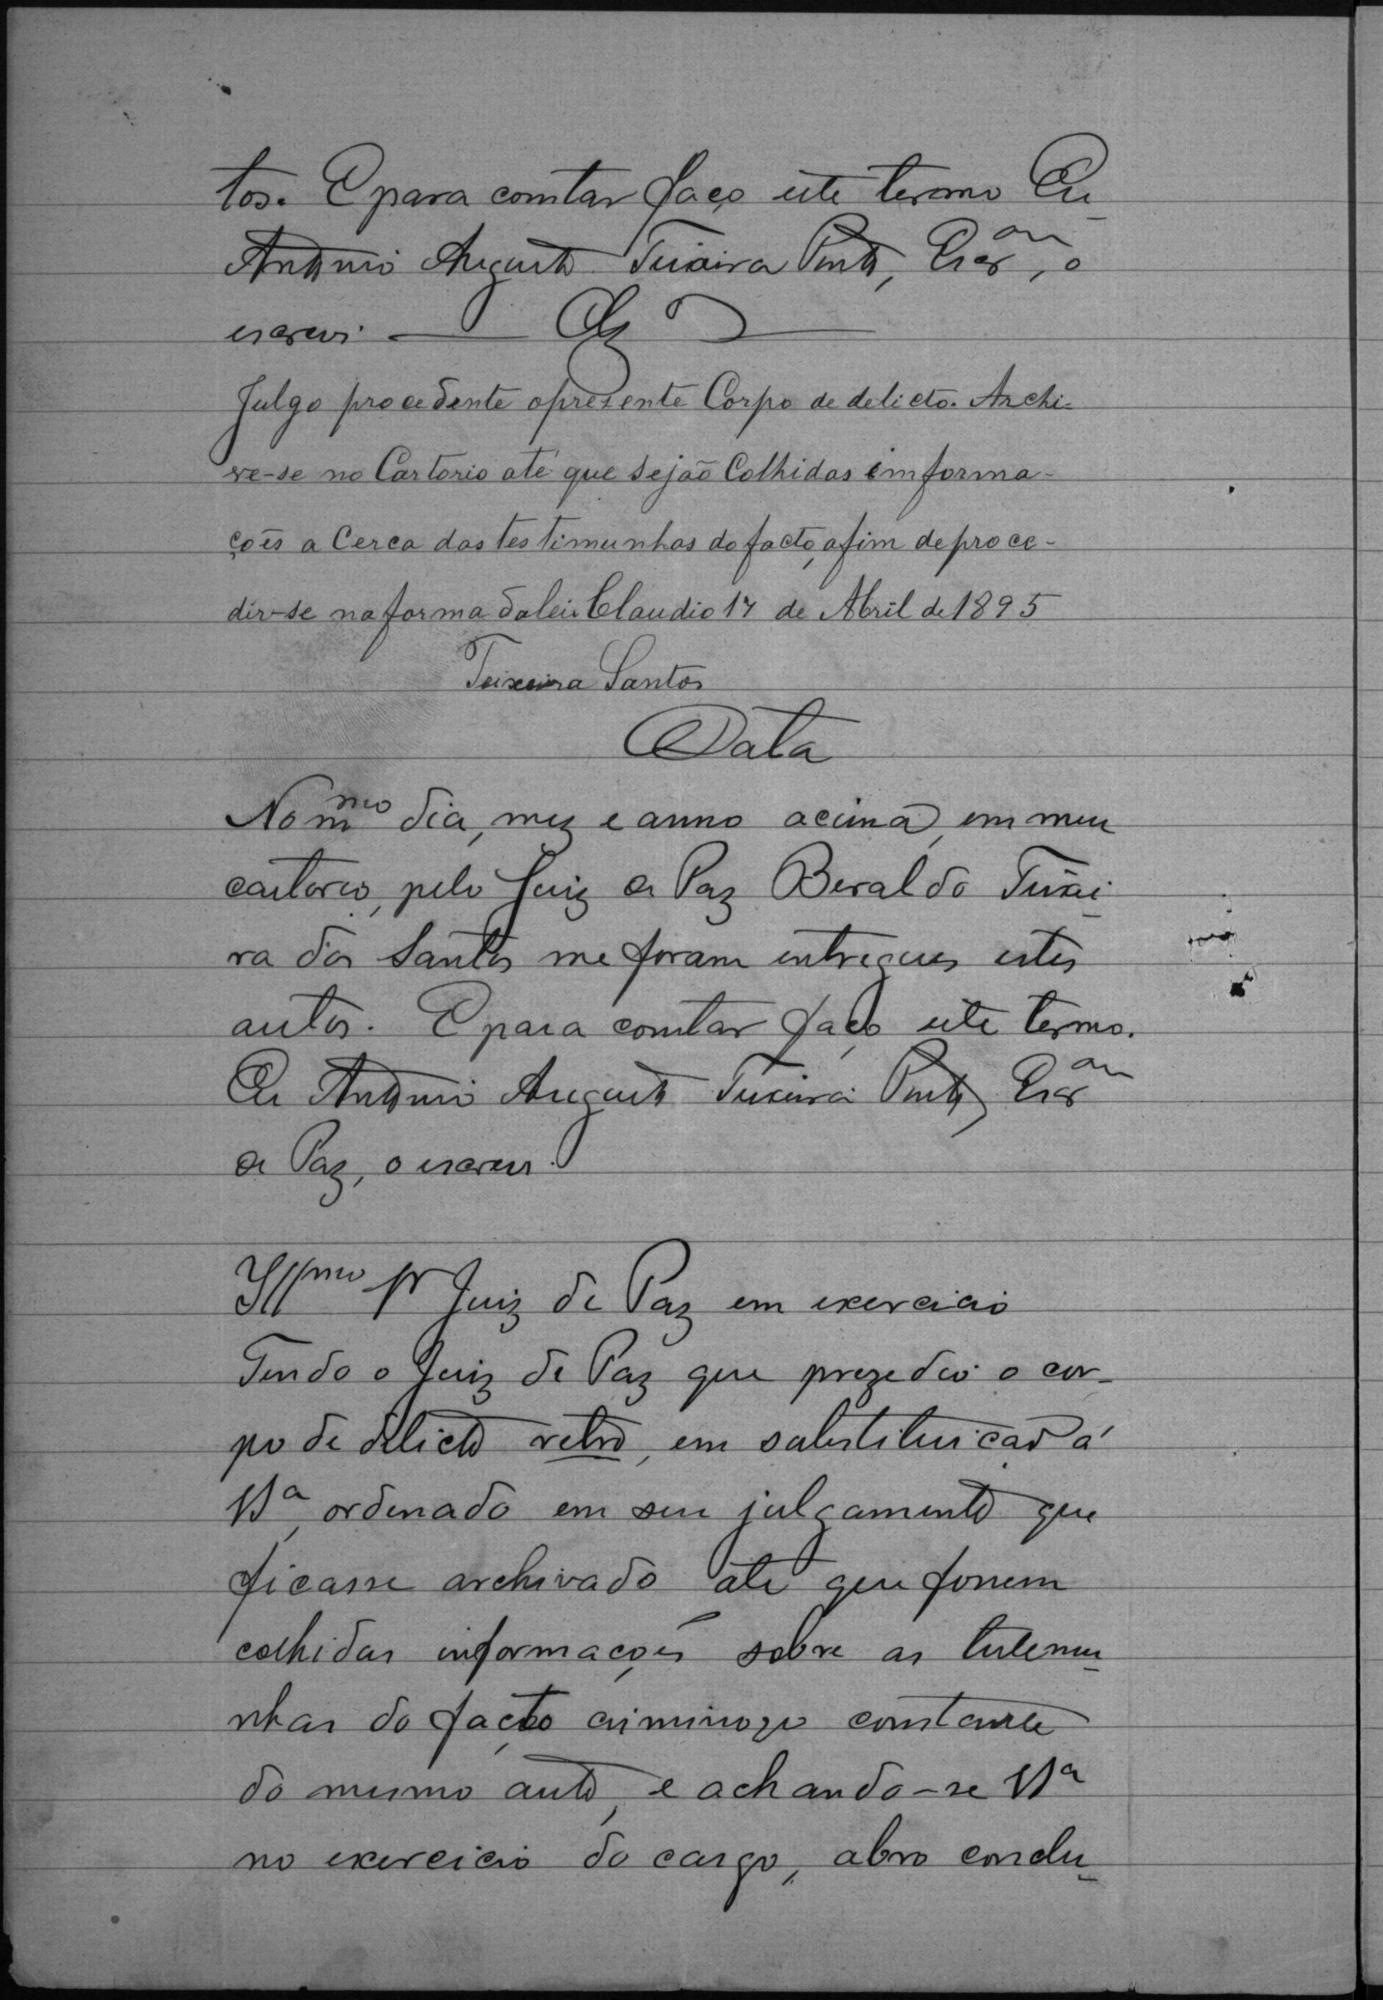 tos. E para constar faço este termo Eu
Antonio Augusto Teixeira Pinto, Escr.am, o
escrevi.
Julgo procedente oprezente Corpo de delicto. Archi-
ve-se no Cartorio até que sejão Colhidas imforma-
çoẽs a Cerca das testimunhas do facto, afim de proce-
dir-se na forma da lei Claudio 17 de Abril de 1895
Teixeira Santos
Data
No mmo dia, mez e anno acima, em meu
cartorio, pelo Juiz de Paz Beraldo Teixei-
ra dos Santos me foram entregues estes
autos. E para constar faço este termo.
Eu Antonio Augusto Teixeira Pinto, Escr.am
de Paz, o escrevi.
Illmo Sr Juiz de Paz em exercicio
Tendo o Juiz de Paz que prezedio o cor-
po de delicto retro, em substituição á
VSa, ordenado em seu julgamento que
ficasse archivado até que fossem
colhidas informações sobre as testemu-
nhas do facto criminozo constante
do mesmo auto, e achando-se VSa
no exercicio do cargo, abro conclu-